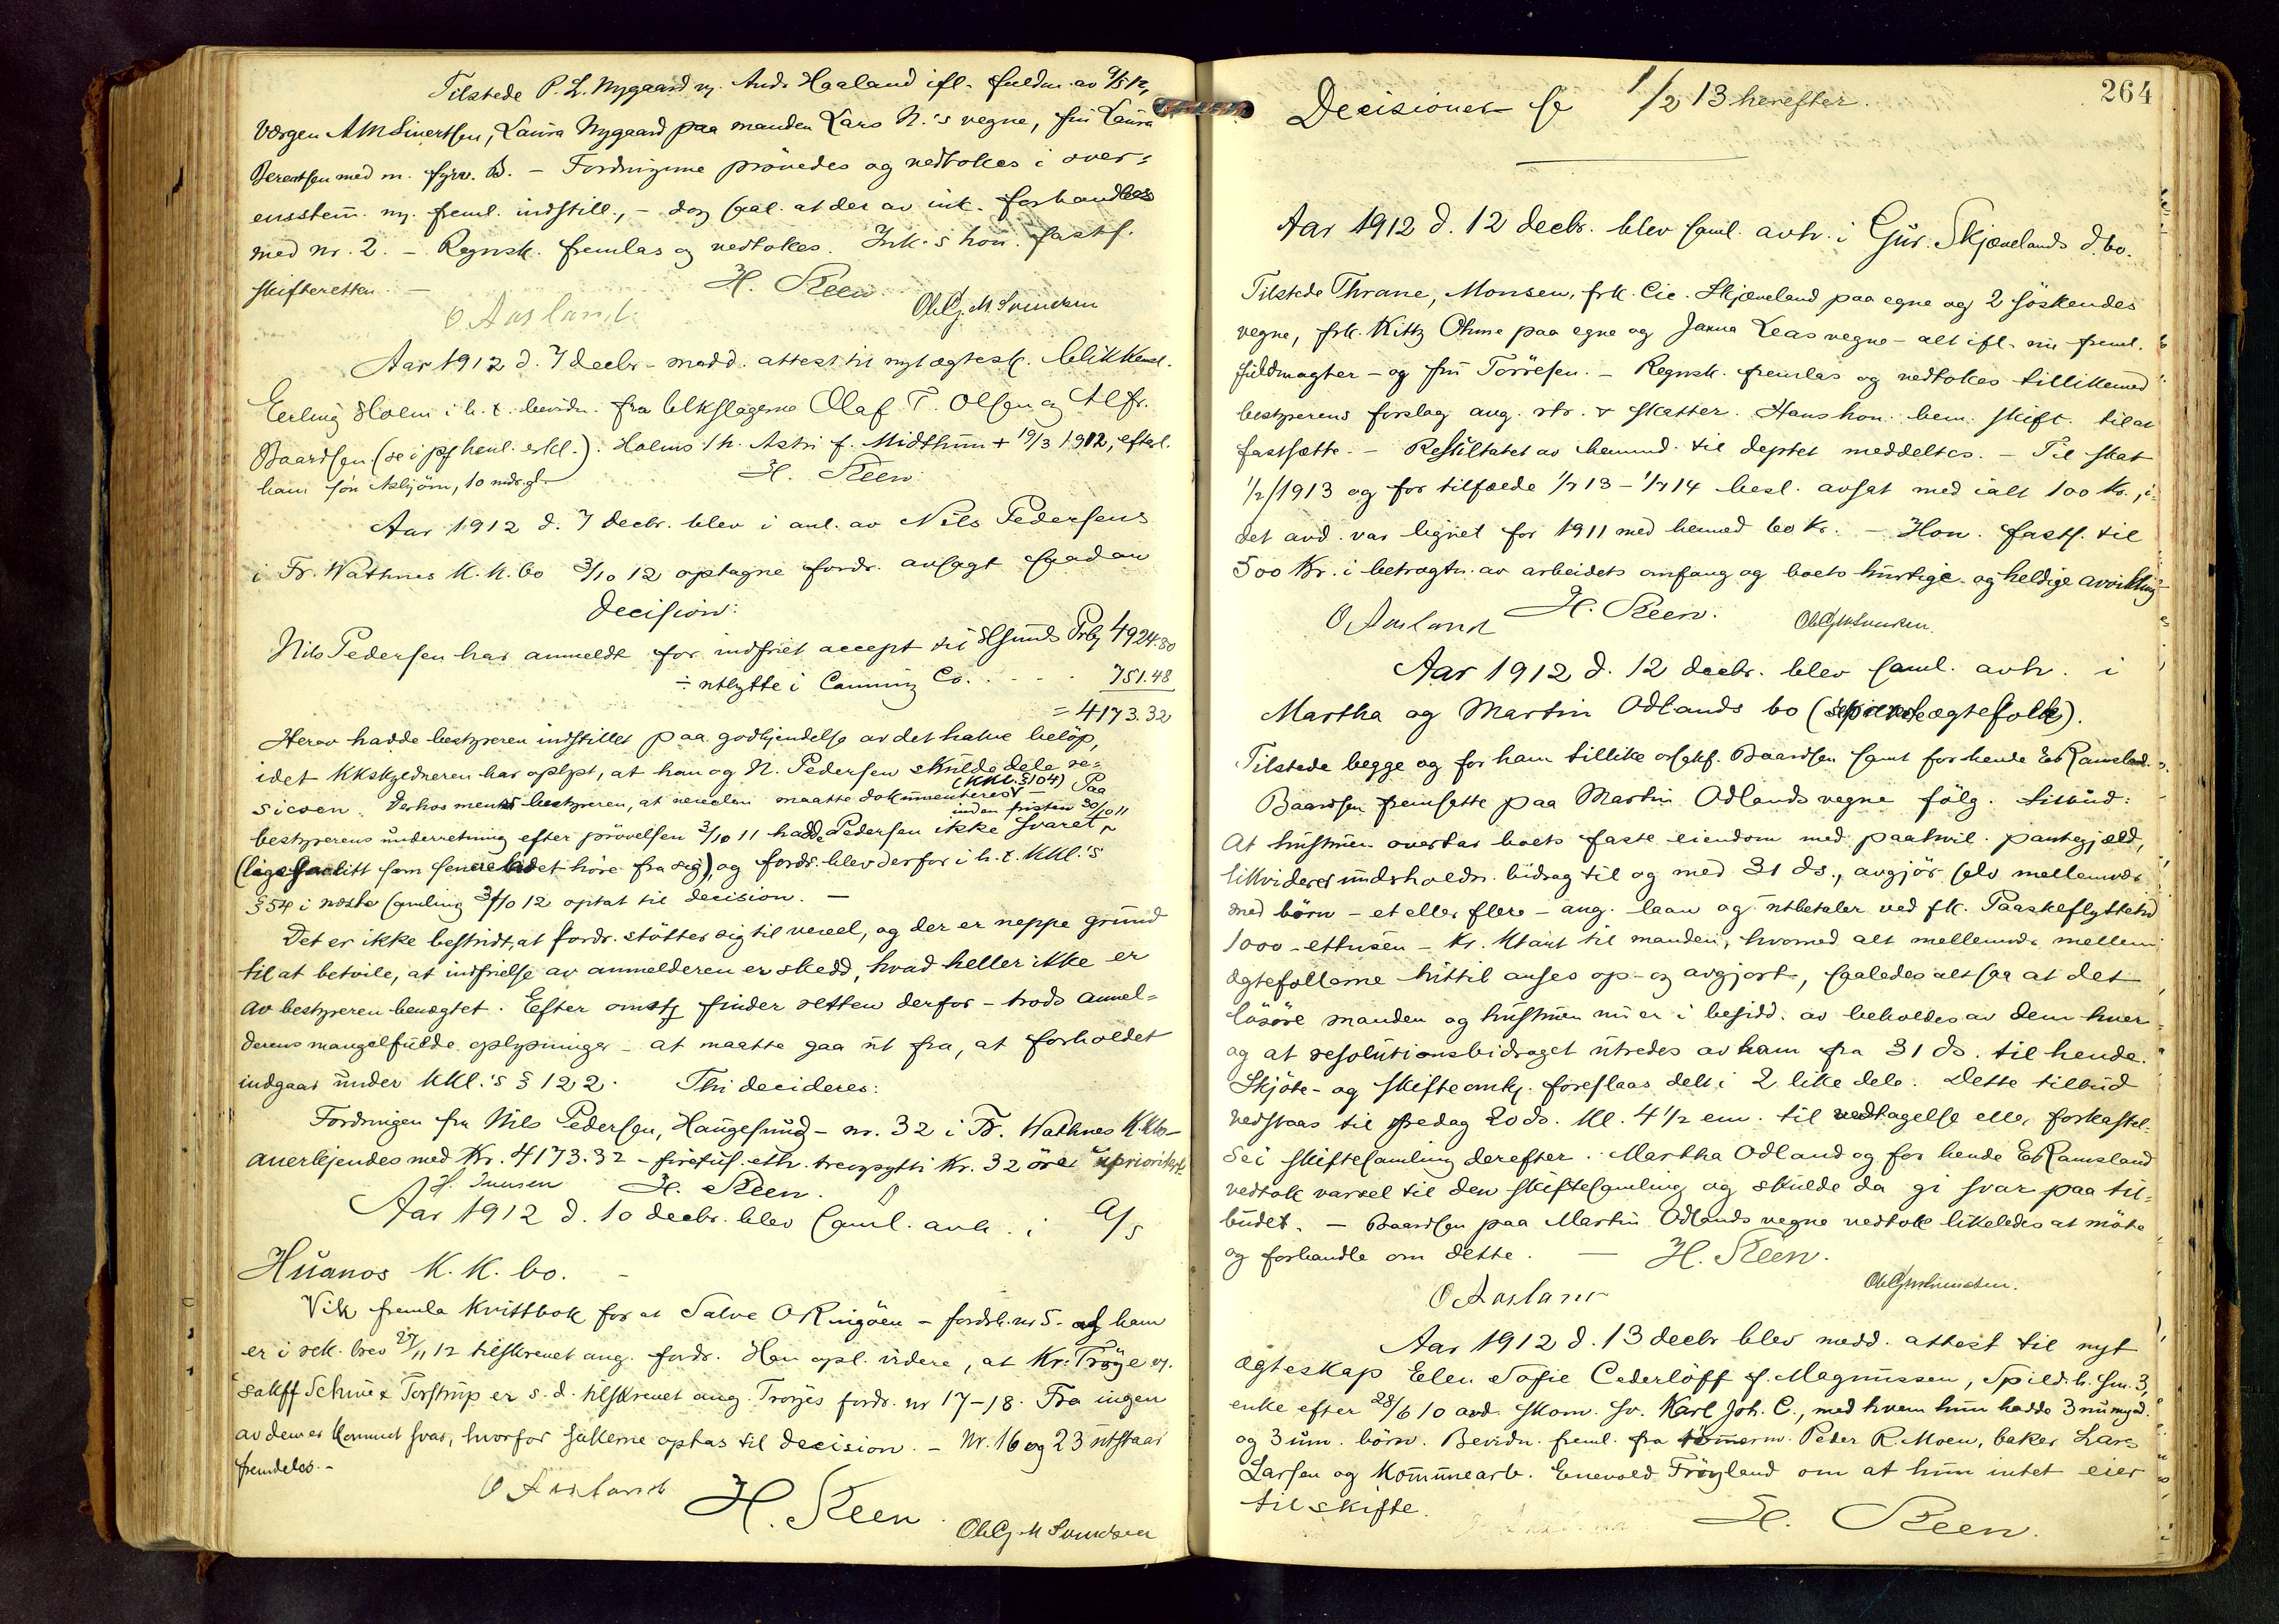 Tilstede P. L. Nygaard v. Andr. Haaland ifl. fuldm. av 9/5 12,
værgen A M Sivertsen, Laura Nygaard paa manden Lars N.'s vegne, fru Laura
Berentsen med m. fyrv. B. – Fordringerne prövedes og vedtokes i over=
ensstem. m. freml. indstill., – dog saal. at der av ink. forhandles
med nr. 2. – Regnsk. fremlas og vedtokes. Ink.s hon. fasts.
skifteretten. –
H. Steen
O Aasland
Ole G. M. Svendsen
Aar 1912 d. 7 decbr. medd. attest til nyt ægtesk. blikkensl.
Erling Holm i h. t. bevidn. fra blkslagerne Olaf T. Olsen og Alfr.
Baardsen (se i pf henl. erkl.). Holms h. Astri f. Midthun + 19/3 1912, efterl.
ham sön Asbjörn, 10 mdr. gl.
H. Steen
Aar 1912 d. 7 decbr. blev i anl. av Nils Pedersens
i Fr. Wathnes K. K. bo 3/10 12 optagne fordr. avsagt saadan
decision:
Nils Pedersen har anmeldt for indfriet accept til Hsunds Prbk 4924.80
÷ utbytte i Canning Co. . . . . 751.48
= 4173.32
Herav hadde bestyreren indstillet paa godkjendelse av det halve belöp,
idet KKskyldneren har oplyst, at han og N. Pedersen skulde dele re=
sicoen. Derhos mente bestyreren, at vexelen maatte dokumenteres (KKl. § 104) – Paa
bestyrerens underretning efter prövelsen 3/10 11 hadde Pedersen ikke svaret inden fristen 30/10 11
(likesaalitt som senere ladet höre fra seg), og fordr. blev derfor i h. t. KKl.'s
§ 54 i næste samling 3/10 12 optat til decision. –
Det er ikke bestridt, at fordr. stötter sig til vexel, og der er neppe grund
til at betvile, at indfrielse av anmelderen er skedd, hvad heller ikke er
av bestyreren benægtet. Efter omst. finder retten derfor – trods anmel=
derens mangelfulde oplysninger – at maatte gaa ut fra, at forholdet
indgaar under KKl.'s § 122. Thi decideres:
Fordringen fra Nils Pedersen, Haugesund – nr. 32 i Fr. Wathnes K.K.bo –
anerkjendes med Kr. 4173.32 – firetus. ethr. treogsytti Kr. 32 öre, uprioritert.
H. Steen.
Aar 1912 d. 10 decbr. blev saml. avh. i A/S
Huanos K. K. bo. –
Vik fremla kvittbok for at Salve O Ringöen – fordrh. nr 5. – af ham
er i rek. brev 27/11 12 tilskrevet ang. fordr. Han opl. videre, at Kr. Tröye v.
sakff Schive & Torstrup er s. d. tilskrevet ang. Tröyes fordr. nr 17–18. Fra ingen
av dem er kommet svar, hvorfor sakerne optas til decision. – Nr. 16 og 23 utstaar
fremdeles. –
O Aasland
H. Steen
Ole G. M Svendsen
264
Decisionen se 1/2 13 herefter.
Aar 1912 d. 12 decbr. blev saml. avh. i Gur. Skjævelands d. bo.
Tilstede Thrane, Monsen, frk. Cic. Skjæveland paa egne og 2 söskendes
vegne, frk. Kitty Ohme paa egne og Janna Leas vegne – alt ifl. nu freml.
fuldmagter – og fru Törresen. – Regnsk. fremlas og vedtokes tillikemed
bestyrerens forslag ang. rtr. & skatter. Hans hon. bem. skift. til at
fastsætte. – Resultatet av henvend. til deptet meddeltes. – Til skat
1/2 1913 og for tilfælde 1/7 13 – 1/7 14 besl. avsat med ialt 100 Kr., i=
det avd. var lignet for 1911 med henved 60 Kr. – Hon. fasts. til
500 Kr. i betragtn. av arbeidets omfang og boets hurtige og heldige avvikling
O Aasland
H. Steen.
Ole G M Svendsen.
Aar 1912 d. 12 decbr. blev saml. avh. i
Martha og Martin Odlands bo (separerte ægtefolk).
Tilstede begge og for ham tillike orsakf. Baardsen samt for hende E Ramsland.
Baardsen fremsatte paa Martin Odlands vegne fölg. tilbud:
At hustruen overtar boets faste eiendom med paahvil. pantegjæld,
likviderer underholdn. bidrag til og med 31 ds., avgjör selv mellemvær
med börn – et eller flere – ang. laan og utbetaler ved fk. Paaskeflyttetid
1000 – ettusen – Kr. klart til manden, hvormed alt mellemvær mellem
ægtefollerne hittil anses op- og avgjort, saaledes altsaa at det
lösöre manden og hustruen nu er i besidd. av beholdes av dem hver
og at resolutionsbidraget utredes av ham fra 31 ds. til hende.
Skjöte- og skifteomk. foreslaas delt i 2 like dele. Dette tilbud
vedstaas til fredag 20 ds. kl. 4 1/2 em. til vedtagelse eller forkastel=
se i skiftesamling derefter. Martha Odland og for hende E Ramsland
vedtok varsel til den skiftesamling og skulde da gi svar paa til=
budet. – Baardsen paa Martin Odlands vegne vedtok likeledes at möte
og forhandle om dette. –
H. Steen.
O Aasland
Ole G M Svendsen.
Aar 1912 d. 13 decbr blev medd. attest til nyt
ægteskap Elen Sofie Cederlöff f. Magnussen, Spild. h. sm. 3,
enke efter 28/6 10 avd. skom. sv. Karl Joh. C., med hvem hun hadde 3 nu mynd.
og 3 um. börn. Bevidn. freml. fra tömmerm. Peder R. Moen, baker Lars
Larsen og kommunearb. Enevold Fröyland om at hun intet eier
til skifte.
H. Steen.